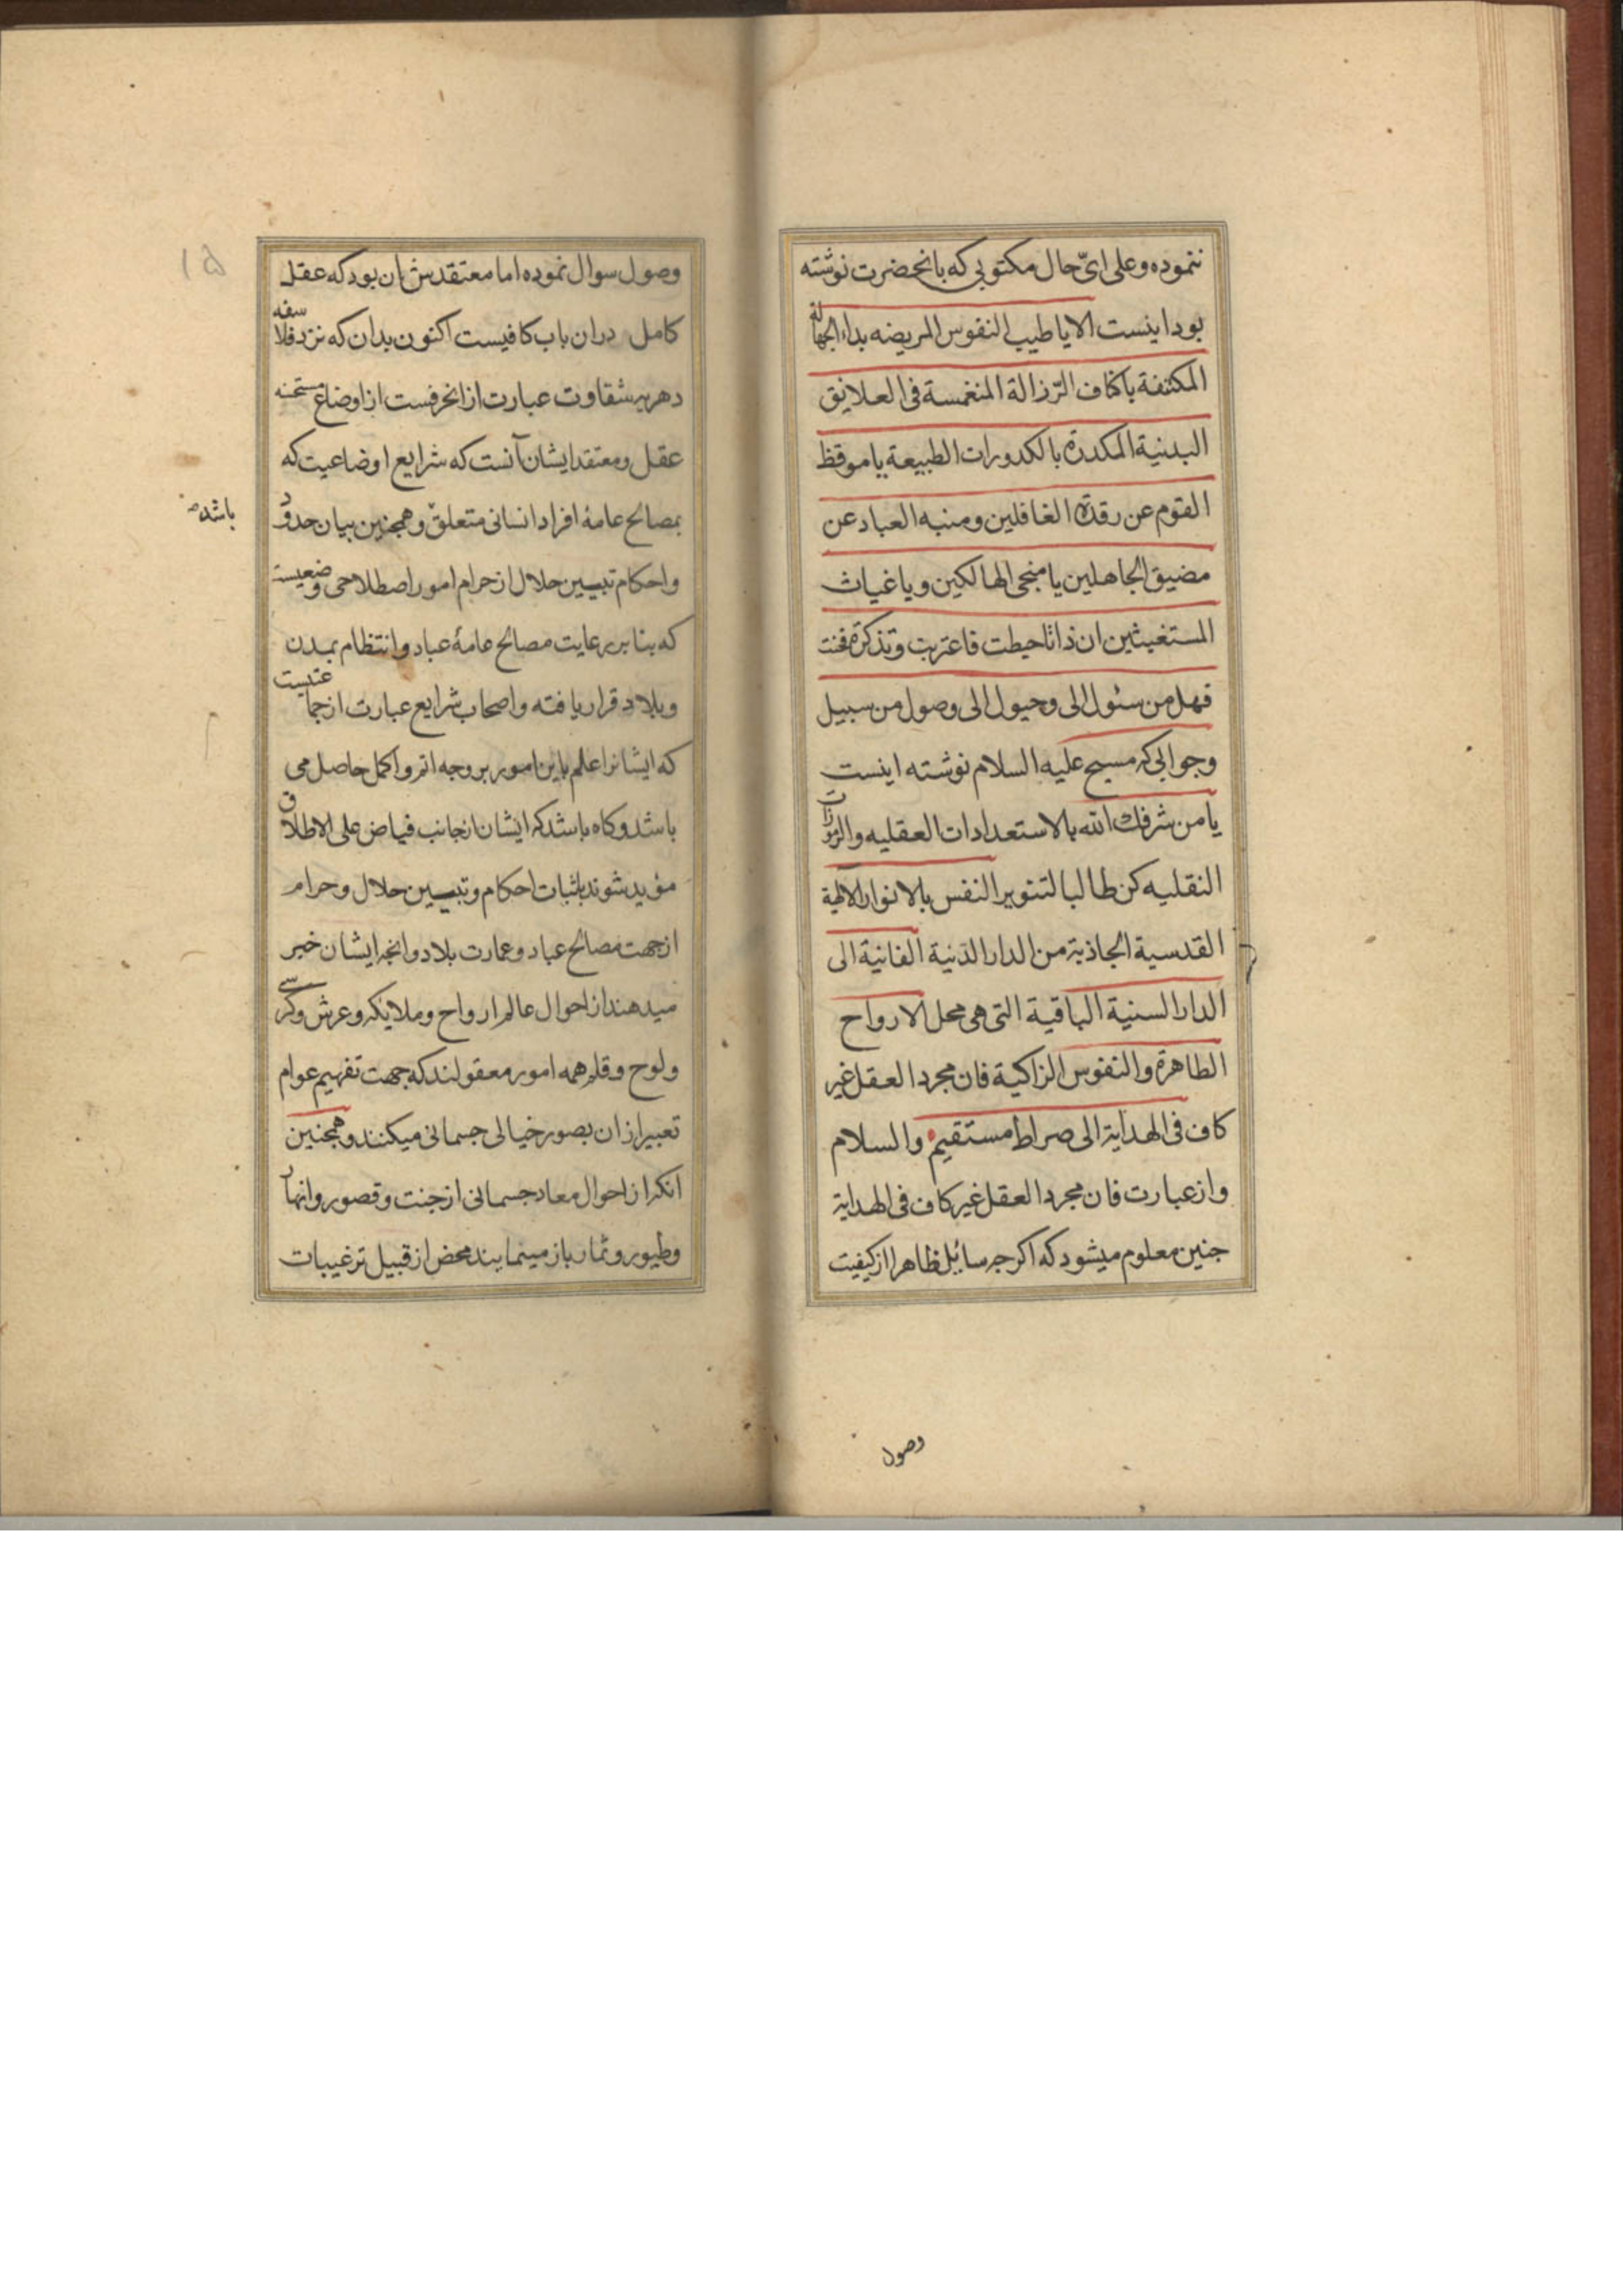 ننموده وعلی ایّ حال مکتوبی که بانحضرت نوشته
بود اینست الا یا طبیب النفوس المریضه بداء الجهالة
المکتنفة باکناف الرّزالة المنغمسة فی العلایق
البدنیة المکدرة بالکدورات الطبیعة یا موقظ
القوم عن رقدة الغافلین ومنبه العباد عن
مضیق الجاهلین یا منجی الهالکین ویا غیاث
المستغیثین ان ذاتا حیطت فاعتربت وتذکرة فخنت
فهل من سئول الی وحیول الی وصول من سبیل
وجوابی که مسیح علیه السلام نوشته اینست
یا من شرفك الله بالاستعدادات العقلیه والرموزات
النقلیه کن طالبا لتنویر النفس بالانوار الالهیة
القدسیة الجاذبة من الدار الدّنیة الفانیة الی
الدار السنیة الباقیة التی هی محل الارواح
الطاهرة والنفوس الزاکیة فان مجرد العقل غیر
کاف فی الهدایة الی صراط مستقیم والسلام
واز عبارت فان مجرد العقل غیر کاف فی الهدایة
جنین معلوم میشود که اکرجه سائل ظاهرا از کیفیت
وصول
١٥
وصول سوال نموده اما معتقدش ان بود که عقل
کامل دران باب کافیست اکنون بدان که نزد فلاسفه
دهریه شقاوت عبارت از انحرفست از اوضاع مستحسنه
عقل ومعتقد ایشان آنست که شرایع اوضاعیت که
بمصالح عامهٔ افراد انسانی متعلقّ وهمجنین بیان حدود
باشد
واحکام تبیین حلال از حرام امور اصطلاحی وضعیست
که بنا بر رعایت مصالح عامهٔ عباد وانتظام بمدن
وبلاد قرار یافته واصحاب شرایع عبارت از جماعتیست
که ایشانرا علم باین امور بروجه اتم واکمل حاصل می
باشد وکاه باشد که ایشان از جانب فیاض علی الاطلاق
مؤید شوند باثبات احکام وتبیین حلال وحرام
از جهت مصالح عباد وعمارت بلاد وانجه ایشان خبر
میدهند از احوال عالم ارواح وملایکه وعرش وکرسی
ولوح وقلم همه امور معقولند که جهت تفهیم عوام
تعبیر از ان بصور خیالی جسمانی میکنند وهمجنین
انکه از احوال معاد جسمانی از جنت وقصور وانهار
وطیور وثمار باز مینمایند محض از قبیل ترغیبات